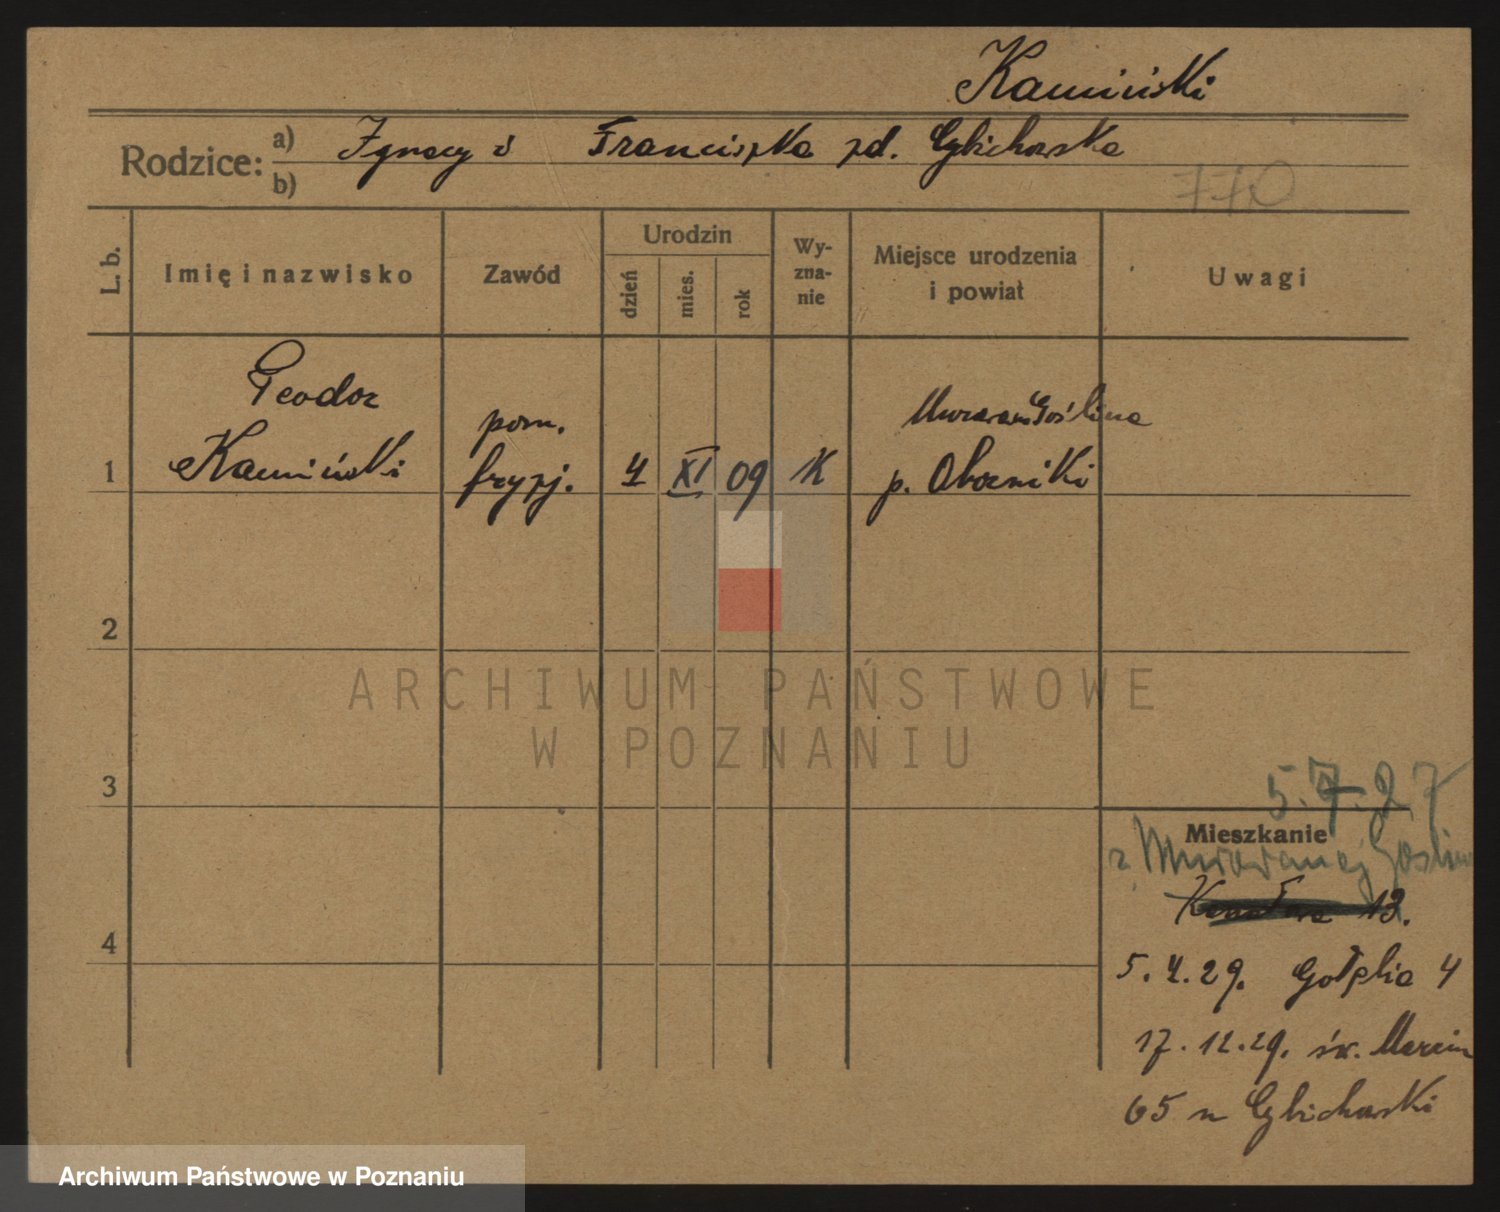 Kamiński
Rodzice: a) Ignacy i Franciszka zd. Cybichowska
b)
770
L. b. Imię i nazwisko Zawód Urodzin dzień mies. rok Wyzna-nie Miejsce urodzenia i powiat Uwagi
Teodor
pom. Murowana Goślina
1 Kamiński fryzj. 4 XI 09 K p. Oborniki
2
ARCHIWUM PAŃSTWOWE
W POZNANIU
3
5.7.27
Mieszkanie
z Murowanej Goślin
13.
4
5.4.29. Gołębia 4
17.12.29. św. Marcin
65 u Cybichowski
Archiwum Państwowe w Poznaniu